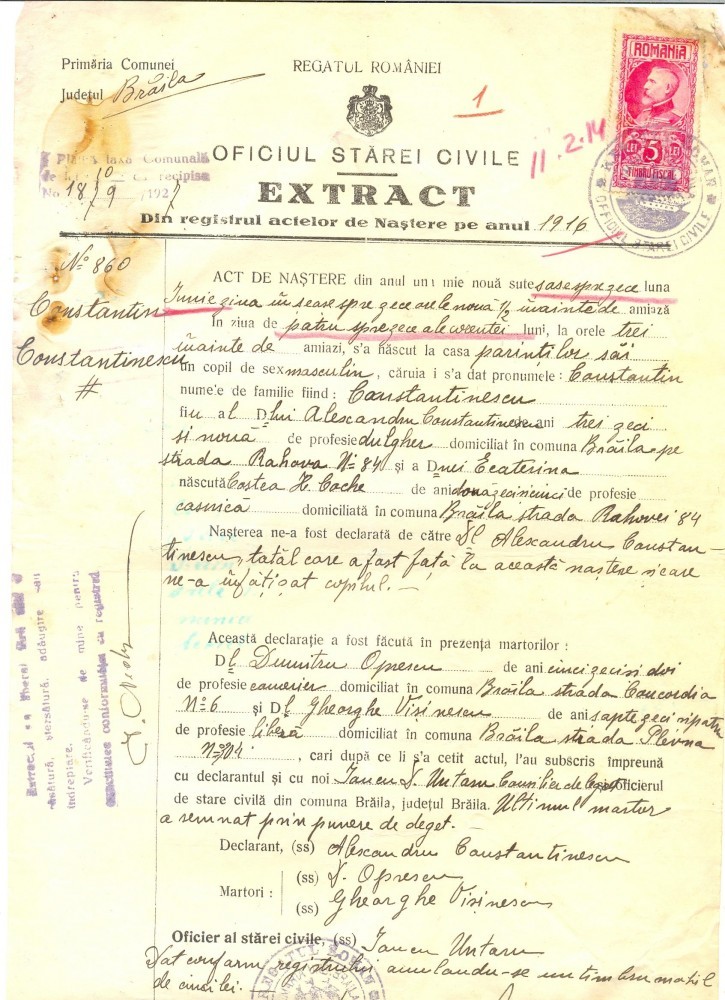 Primăria Comunei
Județul Brăila
REGATUL ROMÂNIEI
1
11.2.14
ROMANIA
LEI 5 LEI
TIMBRU FISCAL
OFICIUL STAREI CIVILE
taxa Comunală
recipisa
No 18/9/1927
OFICIUL STĂREI CIVILE
EXTRACT
Din registrul actelor de Naștere pe anul 1916
No 860
Constantin
Constantinescu
#
ACT DE NAȘTERE din anul una mie nouă sute sasesprezece luna
Iunie ziua în seasesprezece orele nouă ½ înainte de amiază
În ziua de patrusprezece ale corentei luni, la orele trei
înainte de amiazi, s'a născut la casa parinților săi
un copil de sex masculin, căruia i s'a dat pronumele: Constantin
nume'e de familie fiind: Constantinescu
fiu al Dlui Alexandru Constantinescu ani trei zeci
si nouă de profesie dulgher domiciliat în comuna Brăila pe
strada Rahova No 84 și a Dnei Ecaterina
născută Costea H. Coche de ani douăzecisicinci de profesie
casnică domiciliată în comuna Brăila strada Rahovei 84
Nașterea ne-a fost declarată de către Dl Alexandru Constan-
tinescu, tatăl care a fost față la această naștere și care
ne-a înfățișat copilul. —
Această declarație a fost făcută în prezența martorilor:
Dl Dumitru Oprescu de ani cincizecisi doi
de profesie camerier domiciliat în comuna Brăila strada Concordia
No 6 și Dl Gheorghe Vișinescu de ani saptezeci si patru
de profesie liberă domiciliat în comuna Brăila strada Plevna
No 104, cari după ce li s'a cetit actul, l'au subscris împreună
cu declarantul și cu noi Iancu D. Untaru Consilier delegat oficierul
de stare civilă din comuna Brăila, județul Brăila. Ultimul martor
a semnat prin punere de deget. —
Declarant, (ss) Alexandru Constantinescu
Martori: (ss) D. Oprescu
(ss) Gheorghe Vișinescu
Oficier al stărei civile, (ss) Iancu Untaru
Dat conform registrului anulandu-se un timbru mobil
de cinci lei. —
ștersătură, adăugire sau
îndreptare.
Verificându-se de mine pentru
conformitatea cu registrul